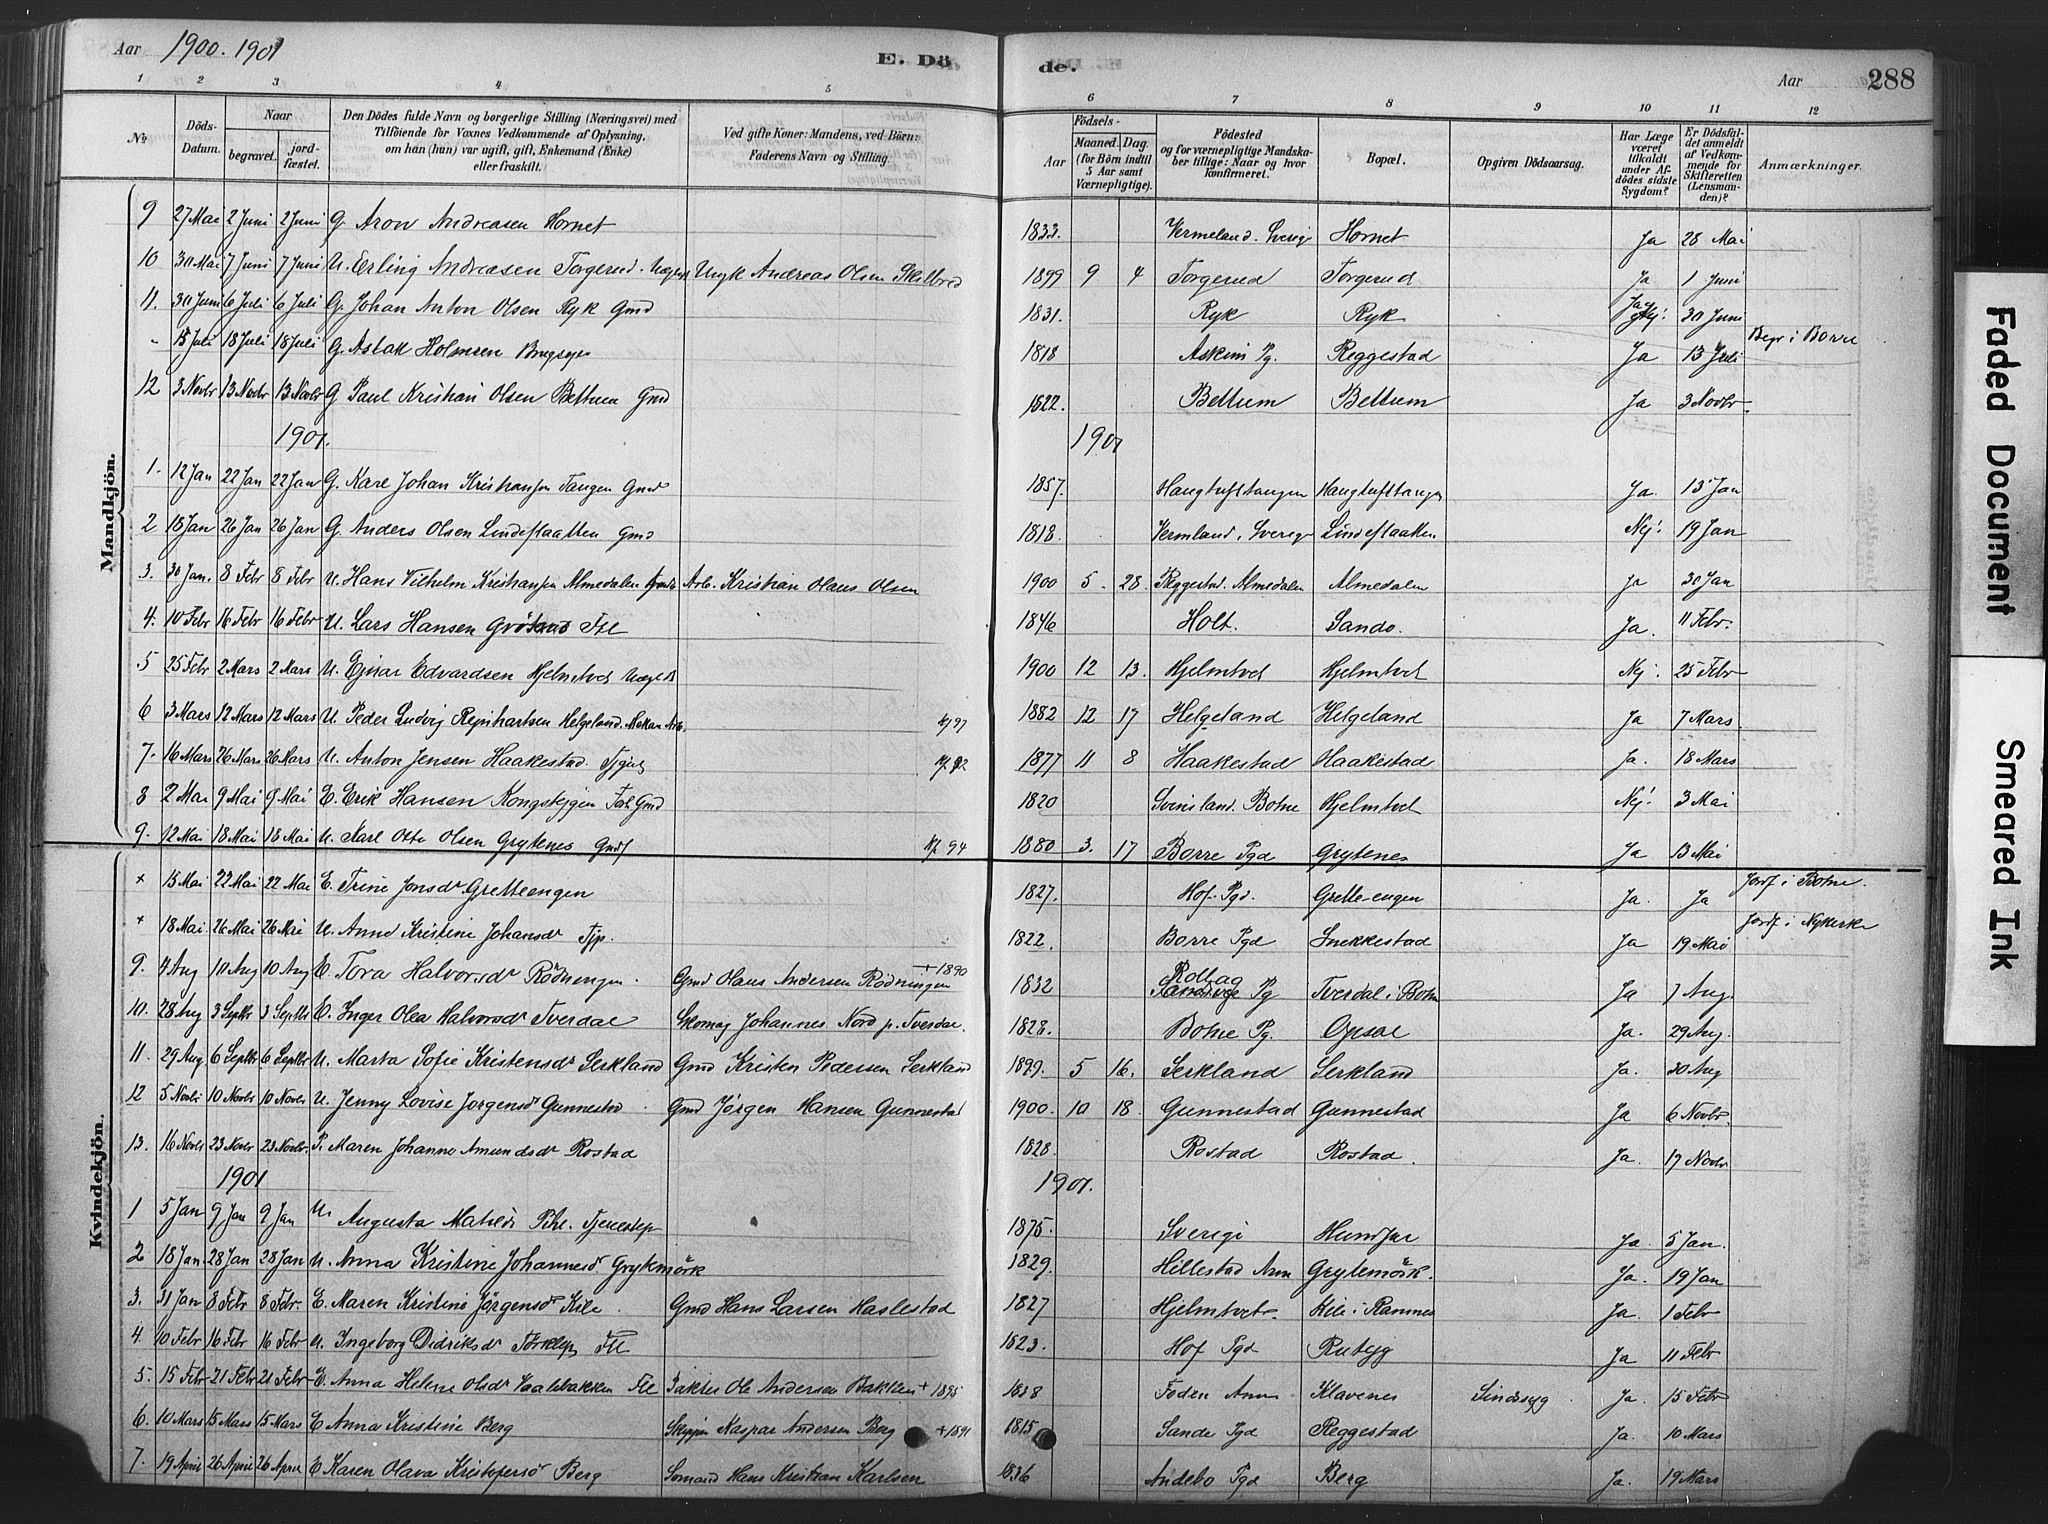 Aar 1900. 1901
E. Dö
de.
Aar 288
1 2 3 4 5 6 7 8 9 10 11 12
№
Döds-Datum.
Naar
begravet.
jord-fæstet.
Den Dödes fulde Navn og borgerlige Stilling (Næringsvei) med
Tilföiende for Voxnes Vedkommende af Oplysning,
om han (hun) var ugift, gift, Enkemand (Enke)
eller fraskilt.
Ved gifte Koner: Mandens, ved Börn:
Faderens Navn og Stilling.
Födsels-
Aar
Maaned. Dag.
(for Börn indtil
5 Aar samt
Værnepligtige).
Födested
og for værnepligtige Mandska-
ber tillige: Naar og hvor
konfirmeret.
Bopæl.
Opgiven Dödsaarsag.
Har Læge
været
tilkaldt
under Af-
dödes sidste
Sygdom?
Er Dödsfal-
det anmeldt
af Vedkom-
mende for
Skifteretten
(Lensman-
den)?
Anmærkninger.
Mandkjön.
9 27 Mai 2 Juni 2 Juni G. Aron Andreasen Hornet 1833. Vermeland. Sverig Hornet Ja 28 Mai
10 30 Mai 7 Juni 7 Juni U. Erling Andreasen Torgerud Ungk Andreas Olsen Skilbred 1899 9 4 Torgerud Torgerud Ja 1 Juni
11. 30 Juni 6 Juli 6 Juli G. Johan Anton Olsen Ryk Gmd 1831. Ryk Ryk Ja 30 Juni
- 13 Juli 18 Juli 18 Juli G. Aslak Holmsen Brugsejer 1818 Askim Pg. Reggestad Ja 13 Juli Begr i Borre
12 3 Novbr 13 Novbr 13 Novbr G Paul Kristian Olsen Bettum Gmd 1822. Bettum Bettum Ja 3 Novbr.
1901. 1901
1. 12 Jan 22 Jan 22 Jan G. Karl Johan Kristiansen Tangen Gmd 1857. Haugtufttangen Haugtufttangen Ja. 13 Jan
2 18 Jan 26 Jan 26 Jan G. Anders Olsen Lindeflaatten Gmd 1818. Vermland. Sverig Lindeflaatten Nej. 19 Jan
3. 30 Jan. 8 Febr 8 Febr U. Hans Vilhelm Kristiansen Almedalen Arb. Kristian Olaus Olsen 1900 5. 28. Reggestad. Almedalen Almedalen Ja 30 Jan
4. 10 Febr 16 Febr 16 Febr U. Lars Hansen Fl 1846 Holt. Sando. Ja. 11 Febr.
5 25 Febr 2 Mars 2 Mars U. Ejnar Edvardsen Hjelmtvet 1900 12 13. Hjelmtvet Hjelmtvet Nej. 25 Febr
6 3 Mars 12 Mars 12 Mars U. Peder Ludvig Rejnhartsen Helgeland. 97 1882 12 17 Helgeland Helgeland Ja 7 Mars.
7. 16 Mars 26 Mars 26 Mars U. Anton Jensen Haakestad. Tjg. 92 1877 11 8 Haakestad Haakestad Ja. 18 Mars
8 2 Mai 9 Mai 9 Mai E. Erik Hansen Kongsejgen Gmd 1820 Svinsland. Botne Hjelmtvet Nej. 3 Mai
9. 12 Mai 18 Mai 18 Mai U. Karl Otto Olsen Grytenes Gmds 94 1880 3. 17 Borre Pgd Grytenes Ja 13 Mai
Kvindekjön.
+ 15 Mai 22 Mai 22 Mai E. Trine Jonsdr Gretteengen 1827. Hof. Pgd. Grette-engen Ja. Ja Jordf i Botne.
+ 18 Mai 26 Mai 26 Mai U. Anne Kristine Johansdr Tjp. 1822. Borre Pgd Snekkestad Ja 19 Mai Jordf i Nykerke
9. 4 Aug 10 Aug 10 Aug E. Tora Halvorsdr Rödningen. Gmd Olaus Andersen Rödningen +1890 1832 Rollag Pg Tverdal i Botne Ja 7 Aug.
10. 28 Aug 3 Septbr 3 Septbr E. Inger Olea Halvorsdr Tverdal Skomag Johannes Nord p. Tverdal. 1828. Botne Pg. Opsal Ja. 29 Aug.
11. 29 Aug 6 Septbr 6 Septbr U. Marta Sofie Kristensdr Serkland Gmd Kristen Pedersen Serkland 1899. 5 16. Serkland Serkland Ja. 30 Aug
12 5 Novbr 10 Novbr 10 Novbr U. Jenny Lovise Jorgensdr Gunnestad. Gmd Jörgen Hansen Gunnestad 1900. 10 18. Gunnestad Gunnestad Ja 6 Novbr.
13. 16 Novbr 23 Novbr 23 Novbr. P. Maren Johanne Amundsdr Rostad 1828. Rostad Rostad. Ja. 17 Novbr
1901 1901.
1 5 Jan 9 Jan 9 Jan U. Augusta Matilde Tjenestep 1875. Sverige Ja. 5 Jan.
2 18 Jan 28 Jan 28 Jan U. Anna Kristine Johannesd Grytemörk 1829. Hillestad Ann Grytemörk. Ja. 19 Jan
3. 31 Jan 8 Febr 8 Febr. E. Maren Kristine Jörgensdr Kile. Gmd Hans Larsen Haslestad 1827 Hjelmtvet. Kile i Ramnes Ja. 1 Febr
4. 10 Febr 16 Febr 16 Febr U. Ingeborg Didriksdr Torklep Fl 1823. Hof Pgd Rutejg Ja 11 Febr
5. 15 Febr 21 Febr 21 Febr E. Anna Helene Olsdr Vaalebakken Fl Ole Andersen Bakken + 1895 1818 Foden Ann Klavenes Sindssyg Ja. 15 Febr
6. 10 Mars 15 Mars 15 Mars E Anna Kristine Berg Skipper Kaspar Andersen Berg +1891 1815 Sande Pgd Reggestad Ja. 10 Mars
7. 19 April 26 April 26 April E Karen Olava Kristofersd Berg Sømand Hans Kristian Karlsen 1836 Andebo Pgd Berg Ja. 19 Mars
Faded Document
Smeared Ink